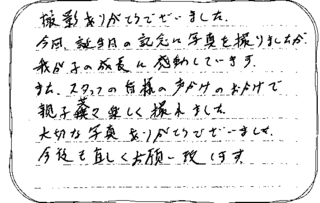 撮影ありがとうございました。
今回、誕生日の記念に写真を撮りましたが、
我が子の成長に感動しています。
また、スタッフの皆様の声かけのおかげで
親子共々楽しく撮れました。
大切な写真ありがとうございました。
今後も宜しくお願い致します。